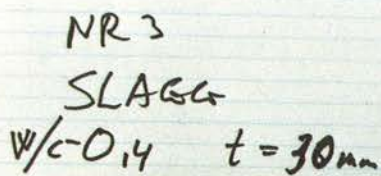 NR 3
SLAGG
w/c-0,4 t = 30mm